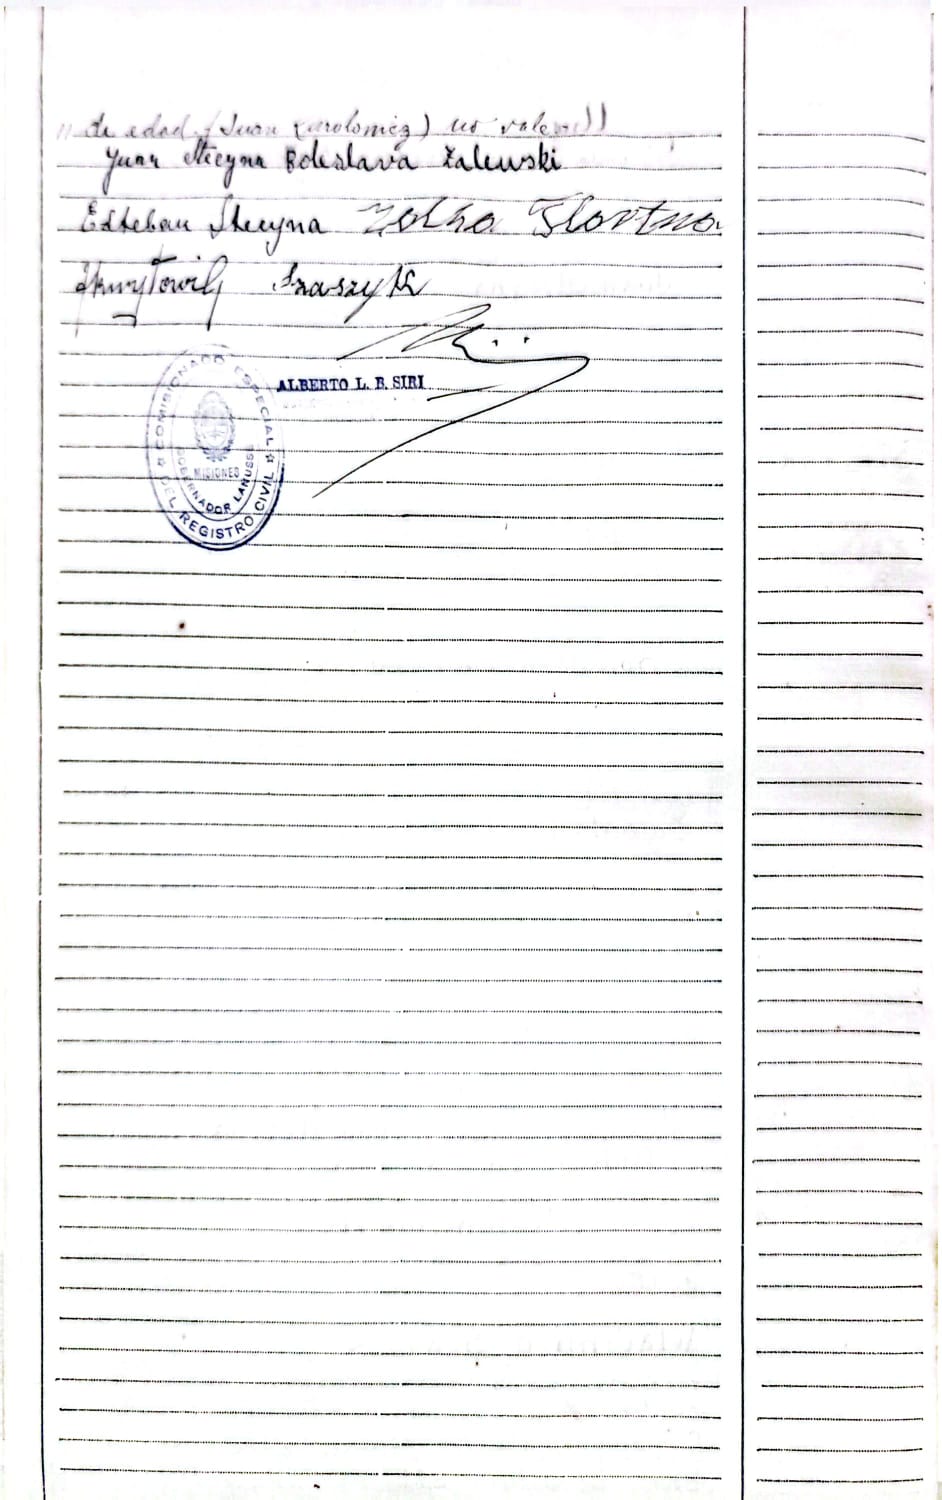 // de edad (Juan Karolomicz) no valen))
Yuan Stecyna Boleslava Zalewski
Esteban Stecyna Zolha
Szaszyk
ALBERTO L. B. SIRI
COMISIONADO ESPECIAL
DEL REGISTRO CIVIL
GOBERNADOR LANUSSE
MISIONES